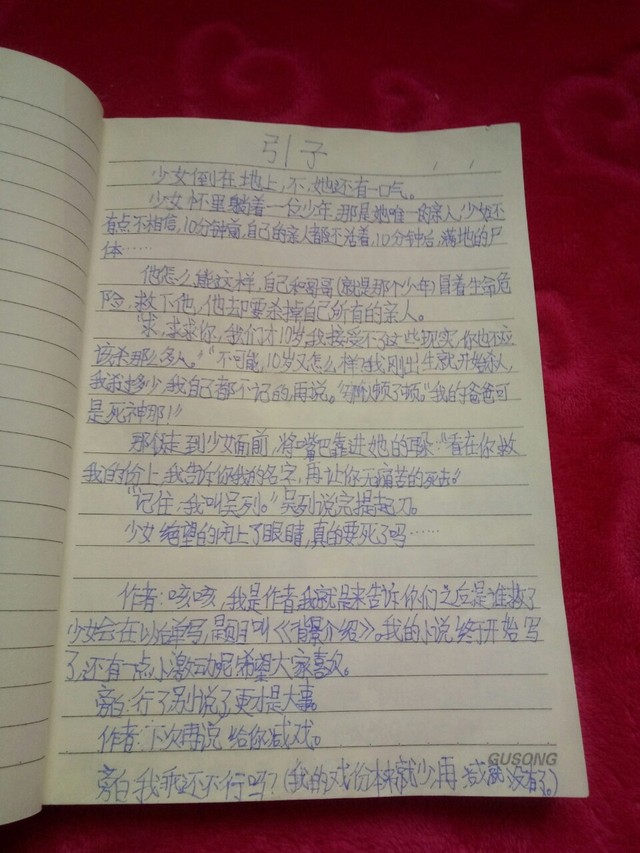 引子
少女倒在地上,不,她还有一口气。
少女怀里躺着一位少年,那是她唯一的亲人,少女还
有点不相信,10分钟前,自己的亲人都还活着,10分钟后,满地的尸
体……
他怎么能这样,自己和哥哥(就是那个少年)冒着生命危
险,救下他,他却要杀掉自己所有的亲人。
"求,求求你,我们才10岁,我接受不了这些现实,你也不应
该杀那么多人。""不可能,10岁又怎么样?我刚出生就开始杀人,
我杀过多少,我自己都不记的,再说。"顿了顿,"我的爸爸可
是死神那!"
那人走到少女面前,将嘴巴靠进她的耳朵:"看在你救
我的份上,我告诉你我的名字,再让你无痛苦的死去。"
"记住,我叫吴列。"吴列说完提起刀。
少女绝望的闭上了眼睛,真的要死了吗……
作者:咳咳,我是作者,我就是来告诉你们之后是谁救了
少女会在以后单写,题目叫《背景介绍》。我的小说终于开始写
了,还有一点小激动呢,希望大家喜欢。
旁白:行了,别小说了,更才是大事。
作者:下次再说,给你减戏。
GUSONG
旁白:我乖还不行吗?(我的戏份本来就少,再减就没有了。)